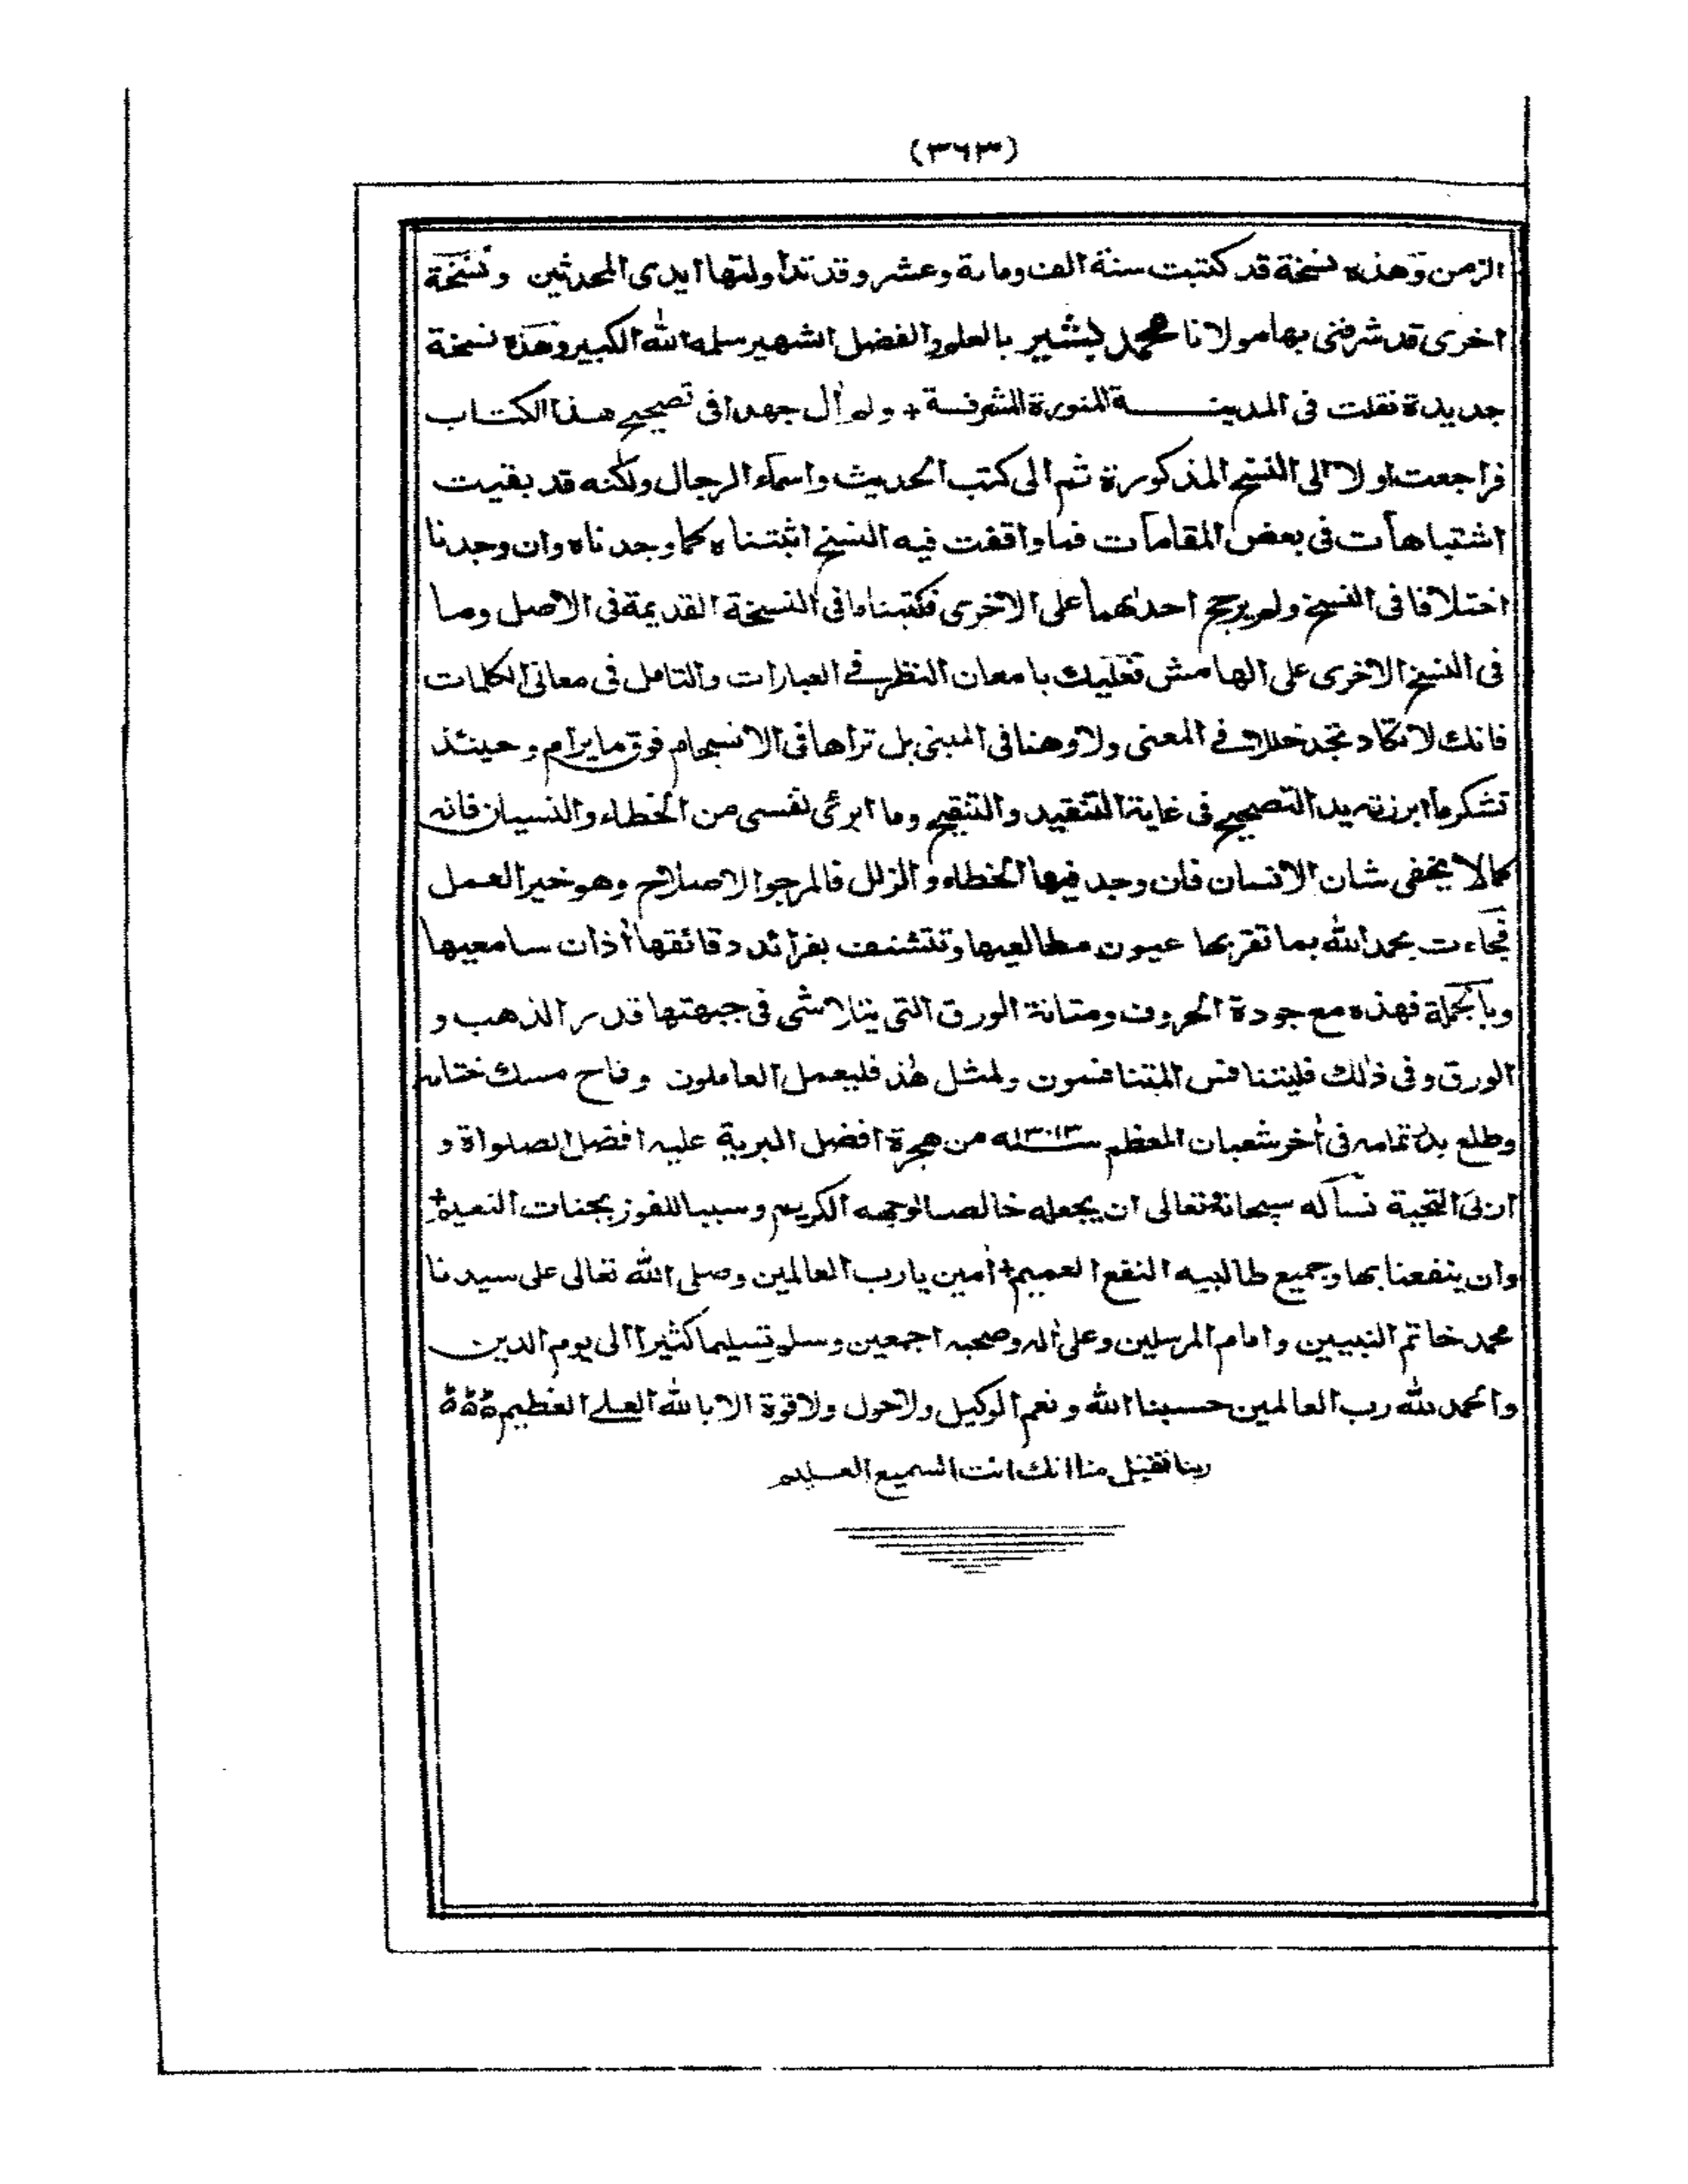 (٣٦٣)
الزمن وهذه نسخة قد كتبت سنة الف ومائة وعشر وقد تداولتها ايدى المحدثين ونسخة
اخرى قد شرفنى بها مولانا محمد بشير بالعلم والفضل الشهير سلمه الله الكبير وهذه نسخة
جديدة نقلت فى المدينة المنورة المشرفة + ولم أل جهدا فى تصحيح هذا الكتاب
فراجعت اولا الى النسخ المذكورة ثم الى كتب الحديث واسماء الرجال ولكنه قد بقيت
اشتباهات فى بعض المقامات فما وافقت فيه النسخ اثبتناه كما وجدناه وان وجدنا
اختلافا فى النسخ ولم يرجح احدٰهما على الاخرى فكتبنا ما فى النسخة القديمة فى الاصل وما
فى النسخ الاخرى على الهامش فعليك بامعان النظر فے العبارات والتامل فى معانى الكلمات
فانك لا تكاد تجد خللا فے المعنى ولا وهنا فى المبنى بل تراها فى الانسجام فوق ما يرام وحينئذ
تشكر ما ابرزته يد التصحيح فى غاية التنقيد والتنقيح وما ابرئ نفسى من الخطاء والنسيان فانه
كما لا يخفى شان الانسان فان وجد فيها الخطاء والزلل فالمرجو الاصلاح وهو خير العمل
فجاءت بحمد الله بما تقر بها عيون مطالعيها وتتشنف بفرائد دقائقها أذان سامعيها
وبالجملة فهذه مع جودة الحروف ومتانة الورق التى يتلاشى فى جبهتها قدر الذهب و
الورق وفى ذٰلك فليتنافس المتنافسون ولمثل هٰذ فليعمل العاملون وفاح مسك ختامه
وطلع بدر تمامه فى أخر شعبان المعظم سنه من هجرة افضل البرية عليه افضل الصلواة و
ازكى التحية نسأله سبحانه تعالى ان يجعله خالصا لوجهه الكريم وسببا للفوز بجنات النعيم+
وان ينفعنا بها وجميع طالبيه النفع العميم+ أمين يا رب العالمين وصلى الله تعالى على سيدنا
محمد خاتم النبيين وامام المرسلين وعلى أله وصحبه اجمعين وسلم تسليما كثيرا الى يوم الدين
والحمد لله رب العالمين حسبنا الله ونعم الوكيل ولا حول ولا قوة الا بالله العلے العظيم
ربنا تقبل منا انك انت السميع العليم